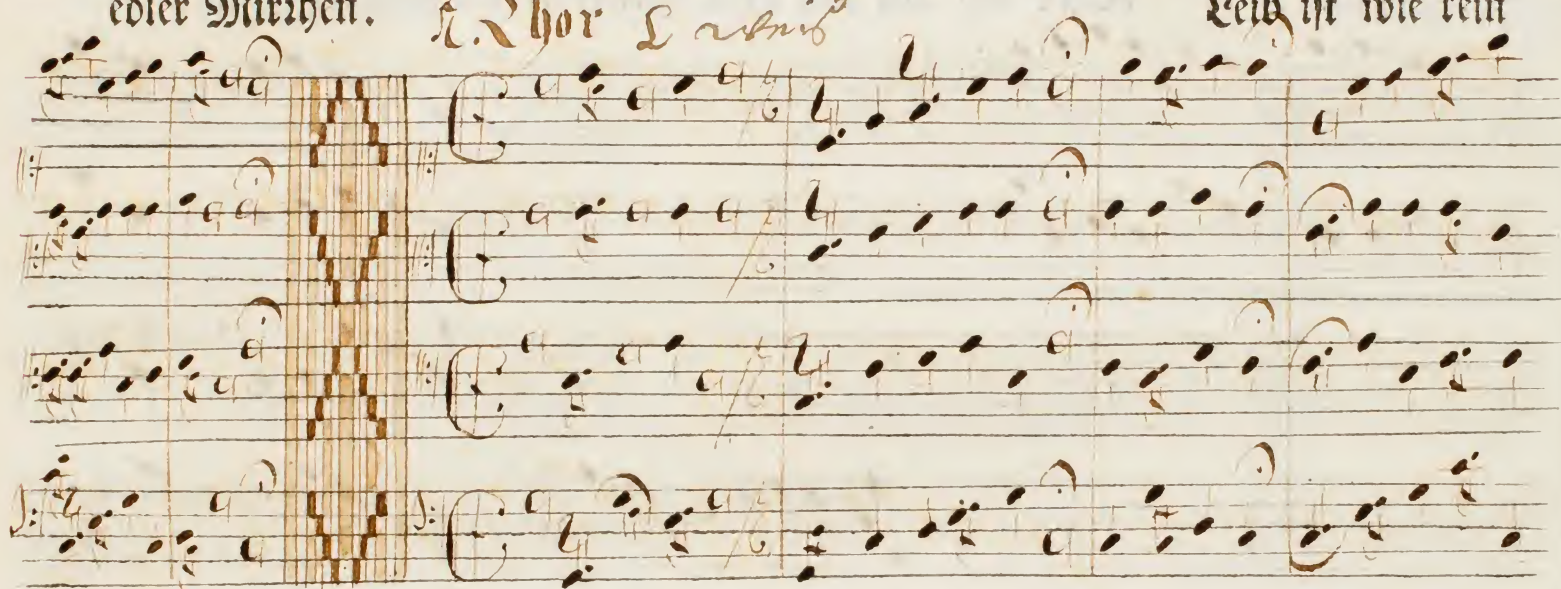 edler Mirrhen.
Chor
Leib ist wie rein